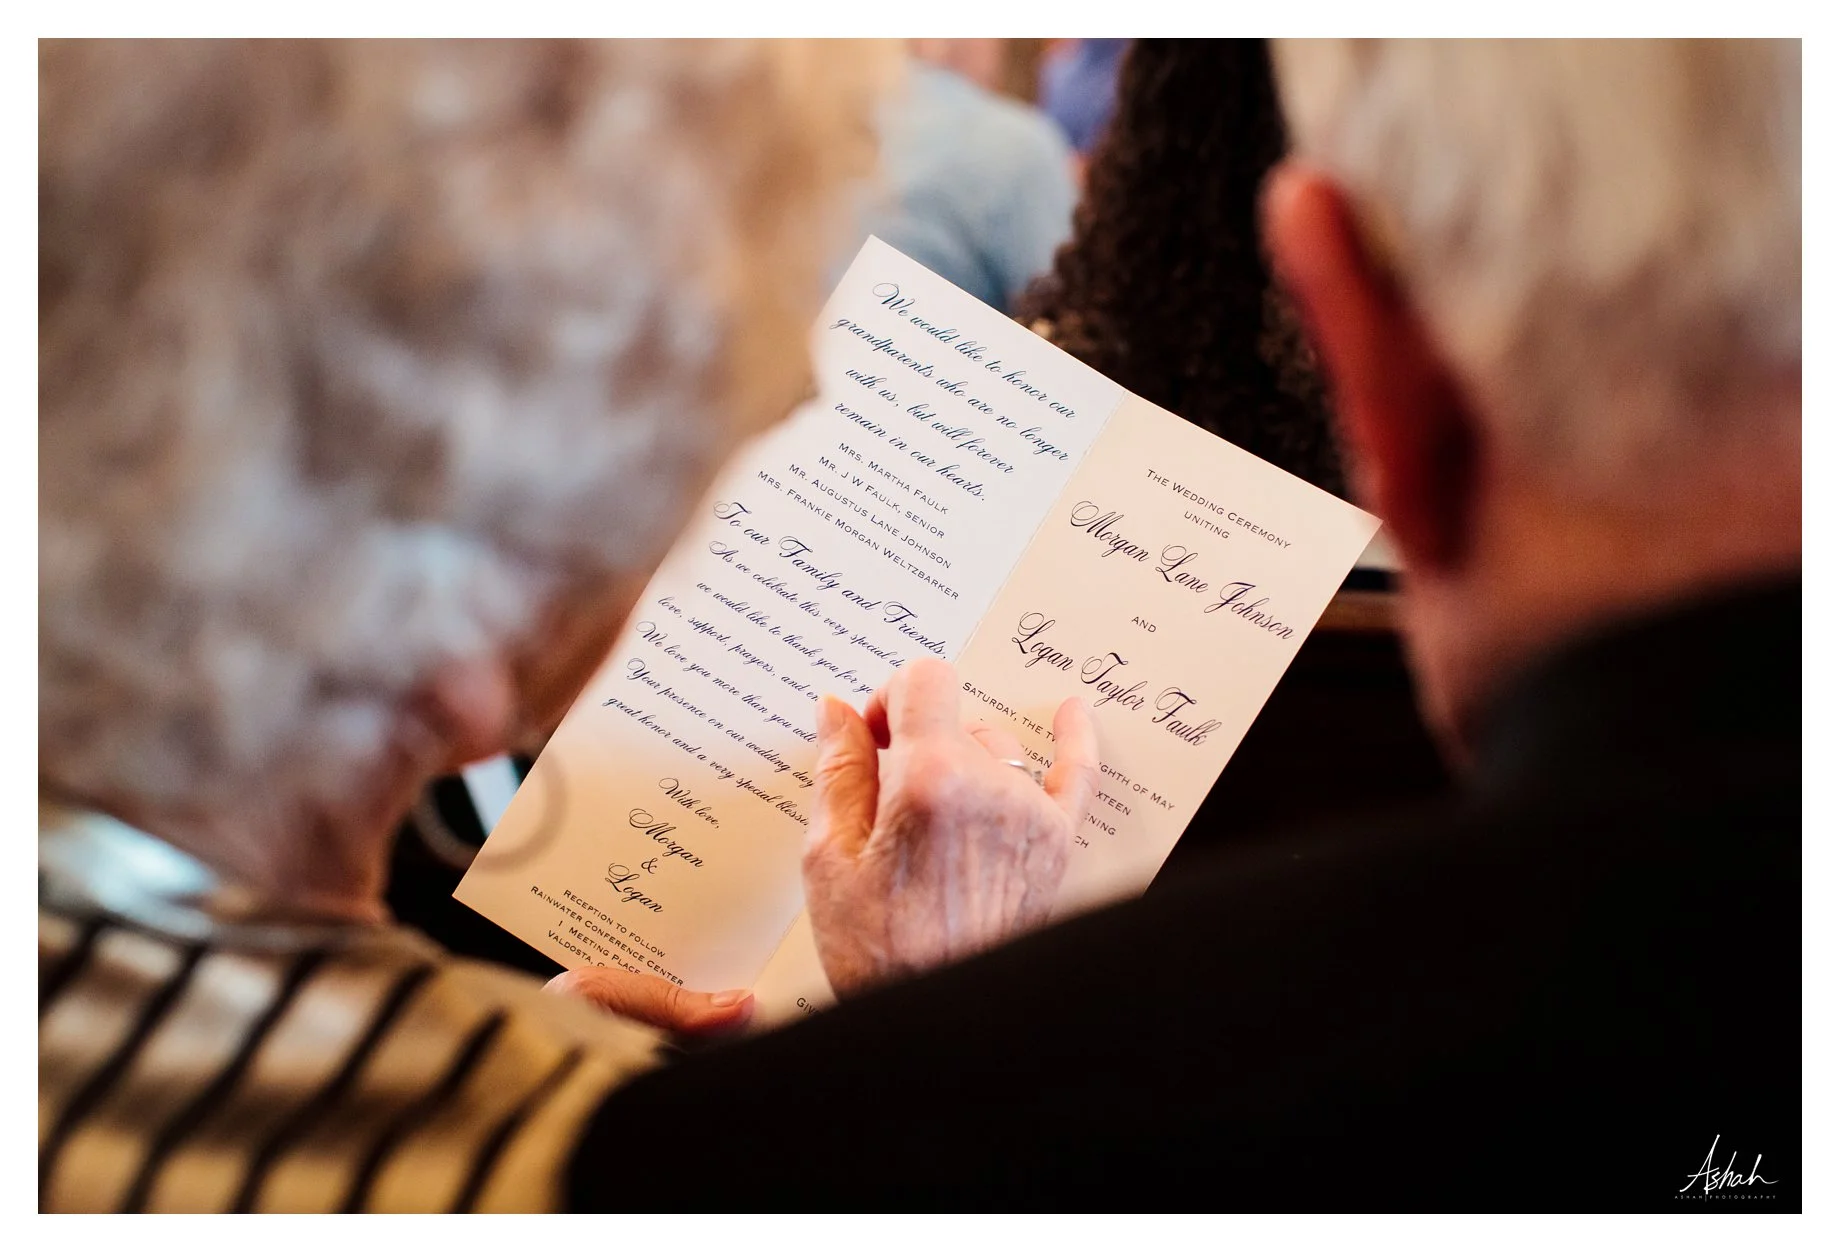 We would like to honor our
grandparents who are no longer
with us, but will forever
remain in our hearts.
MRS. MARTHA FAULK
MR. J W FAULK, SENIOR
MR. AUGUSTUS LANE JOHNSON
MRS. FRANKIE MORGAN WELTZBARKER
To our Family and Friends,
As we celebrate this very special
we would like to thank you for
love, support, prayers, and
We love you more than you will
Your presence on our wedding day
great honor and a very special
With love,
Morgan
&
Logan
RECEPTION TO FOLLOW
RAINWATER CONFERENCE CENTER
1 MEETING PLACE
VALDOSTA,
THE WEDDING CEREMONY
UNITING
Morgan Lane Johnson
AND
Logan Taylor Faulk
SATURDAY, THE OF MAY
Ashah
ASHAH PHOTOGRAPHY